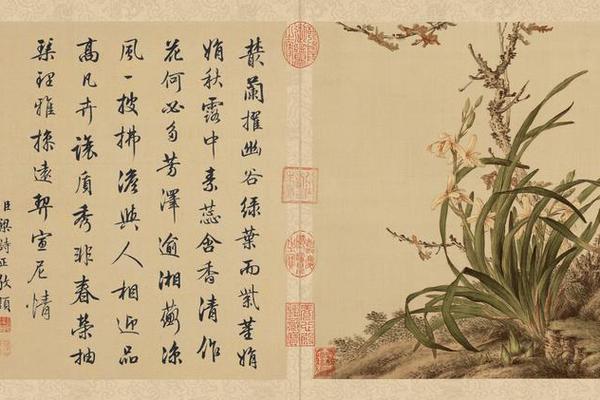 叢蘭擢幽谷綠葉而紫莖娟
娟秋露中素蕊含香清作
花何必多芳澤逾湘蘅涼
風一披拂澹與人相迎品
高凡卉讓質秀非春榮抽
琹理雅操遠契宣尼情
臣梁詩正敬題